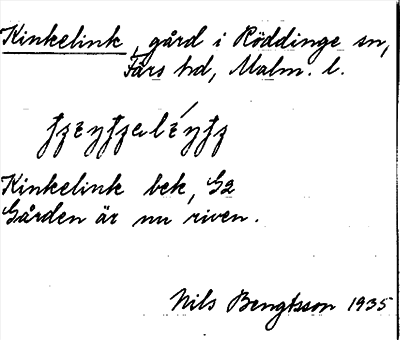 Kinkelink, gård i Röddinge sn,
Färs hd, Malm. l.
Kinkelink bek, G2
Gården är nu riven.
Nils Bengtsson 1935